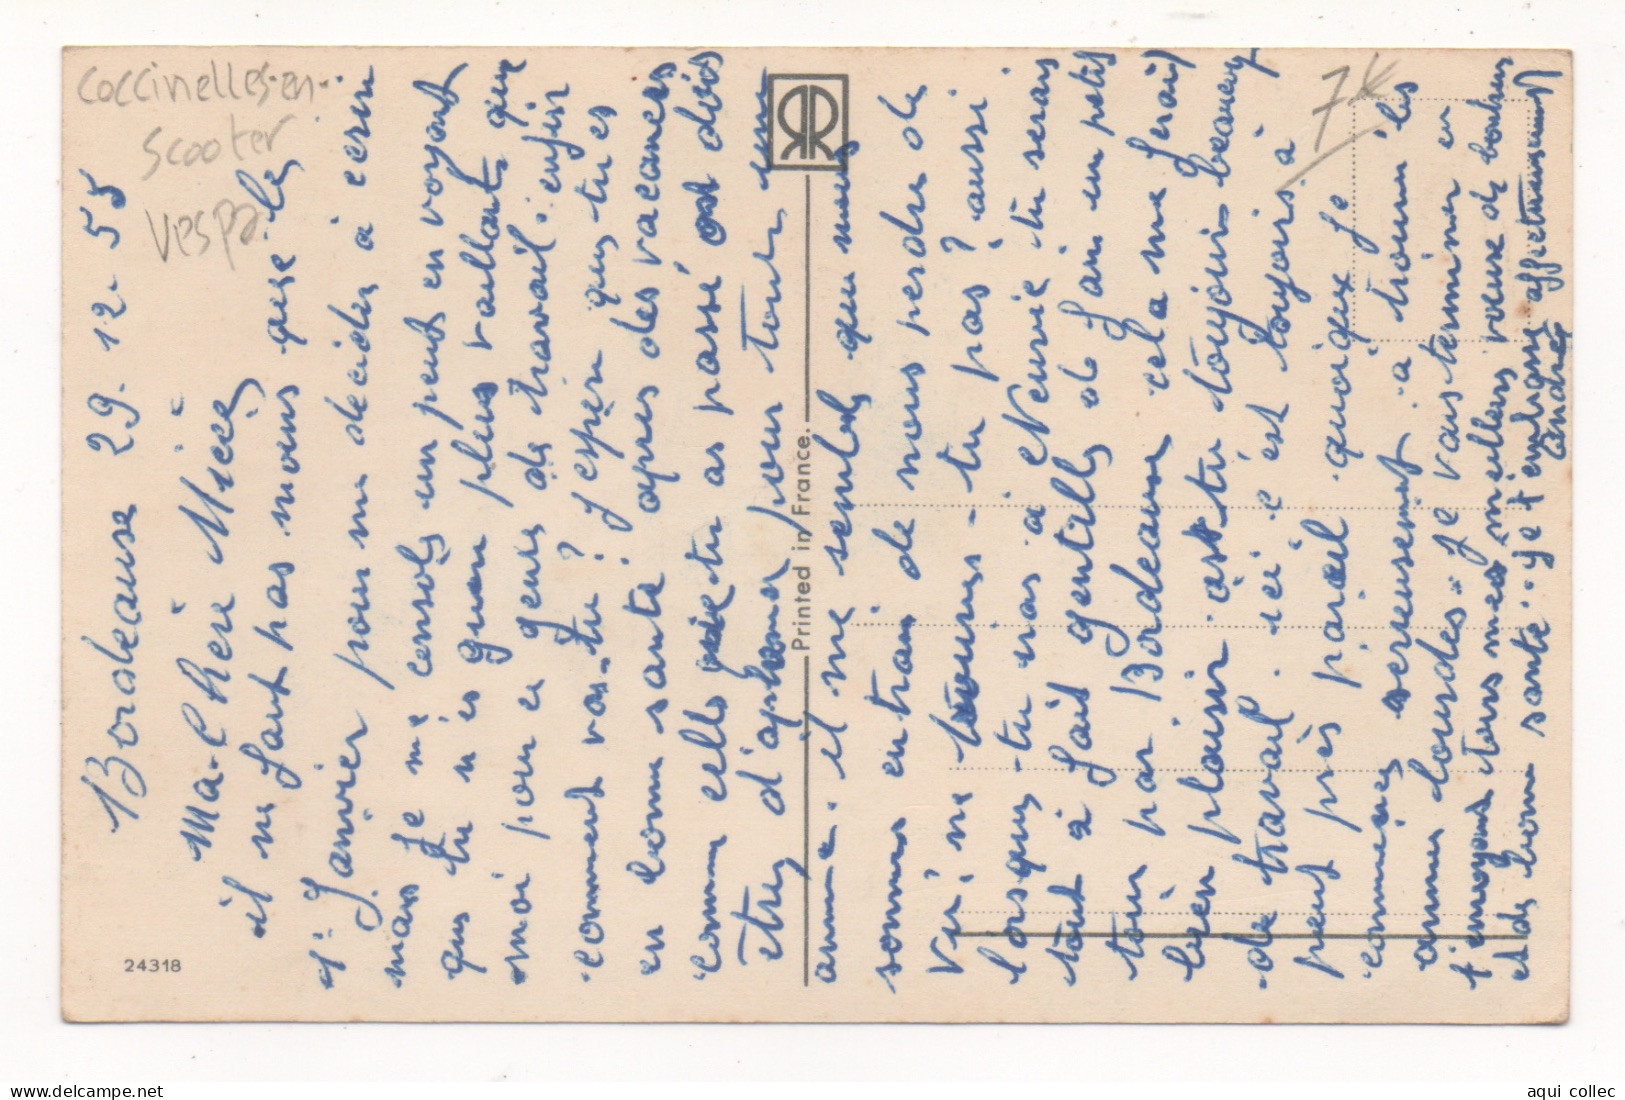 coccinelles-en-
scooter
vespa
7€
Bordeaux 29.12.55
Ma-Cherie Miceé
il ne faut pas moins que le
1i Janvier pour me decider à ecrire
mais je me consols un peut en voyant
que tu n'es guere plus vaillante que
moi pour ce genre de travail. enfin
comment vas-tu? j'espère que tu es
en bonne sante apres des vacances
comme celles que tu as passé
être d'aplomb pour toute une
année. il me semble que nous
sommes en train de nous perdre de
vue ne trouves-tu pas? aussi
lorsque tu iras à tu serais
tout à fait gentille de faire un petit
tour par Bordeaux cela me ferait
bien plaisir. as-tu toujour beaucoup
de travail. ici c'est toujours à
peut près pareil quoique je
commence serieusement à trouver les
années lourdes. Je vais terminer en
t'envoyant tous mes meilleurs vœux de bonheur
et de bonne santé. je t'embrasse affectueusement
Andrée
Printed in France.
24318
aqui collec